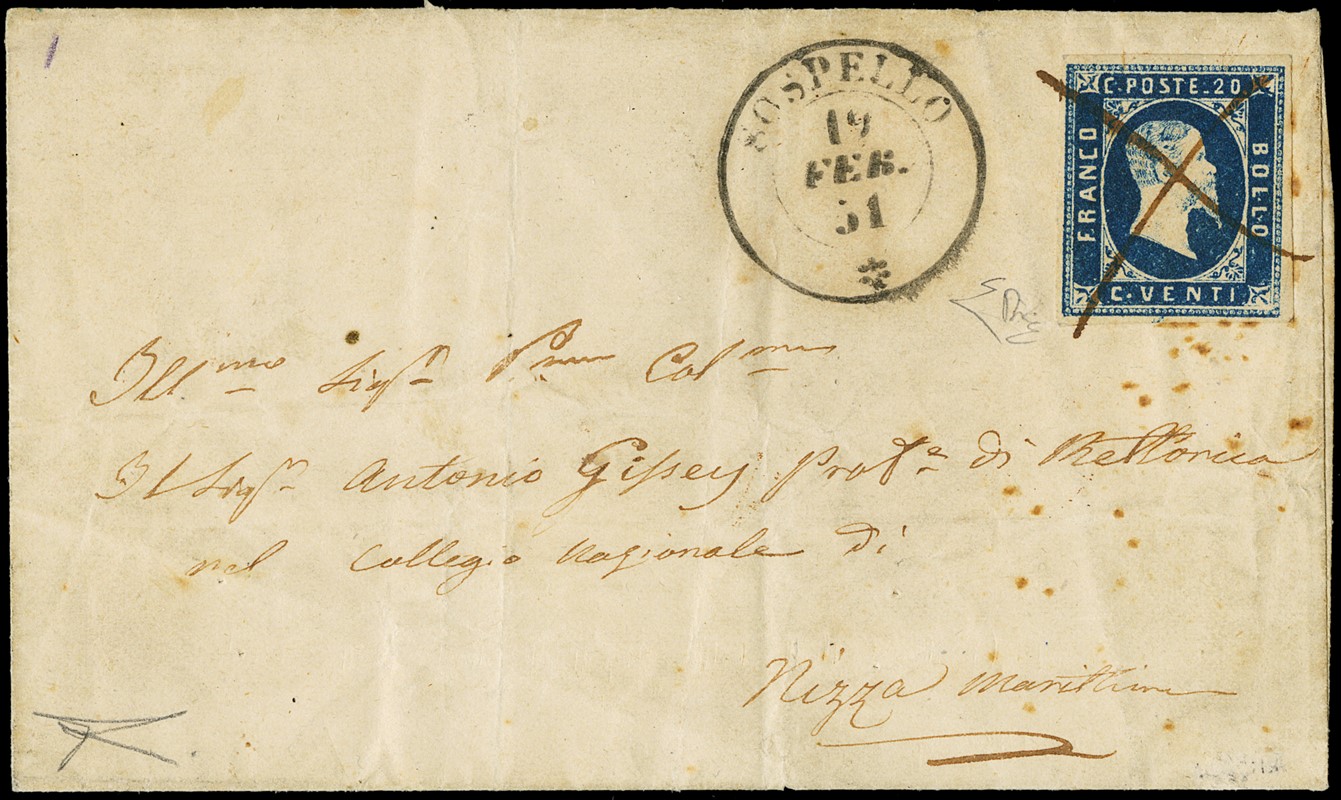 SOSPELLO
19
FEB.
51
C. POSTE. 20
FRANCO
BOLLO
C. VENTI.
Ill.mo Sig.r Pron Col.mo
Il Sig.r Antonio Gissey Prof.e di Rettorica
nel Collegio Nazionale di
Nizza Marittima